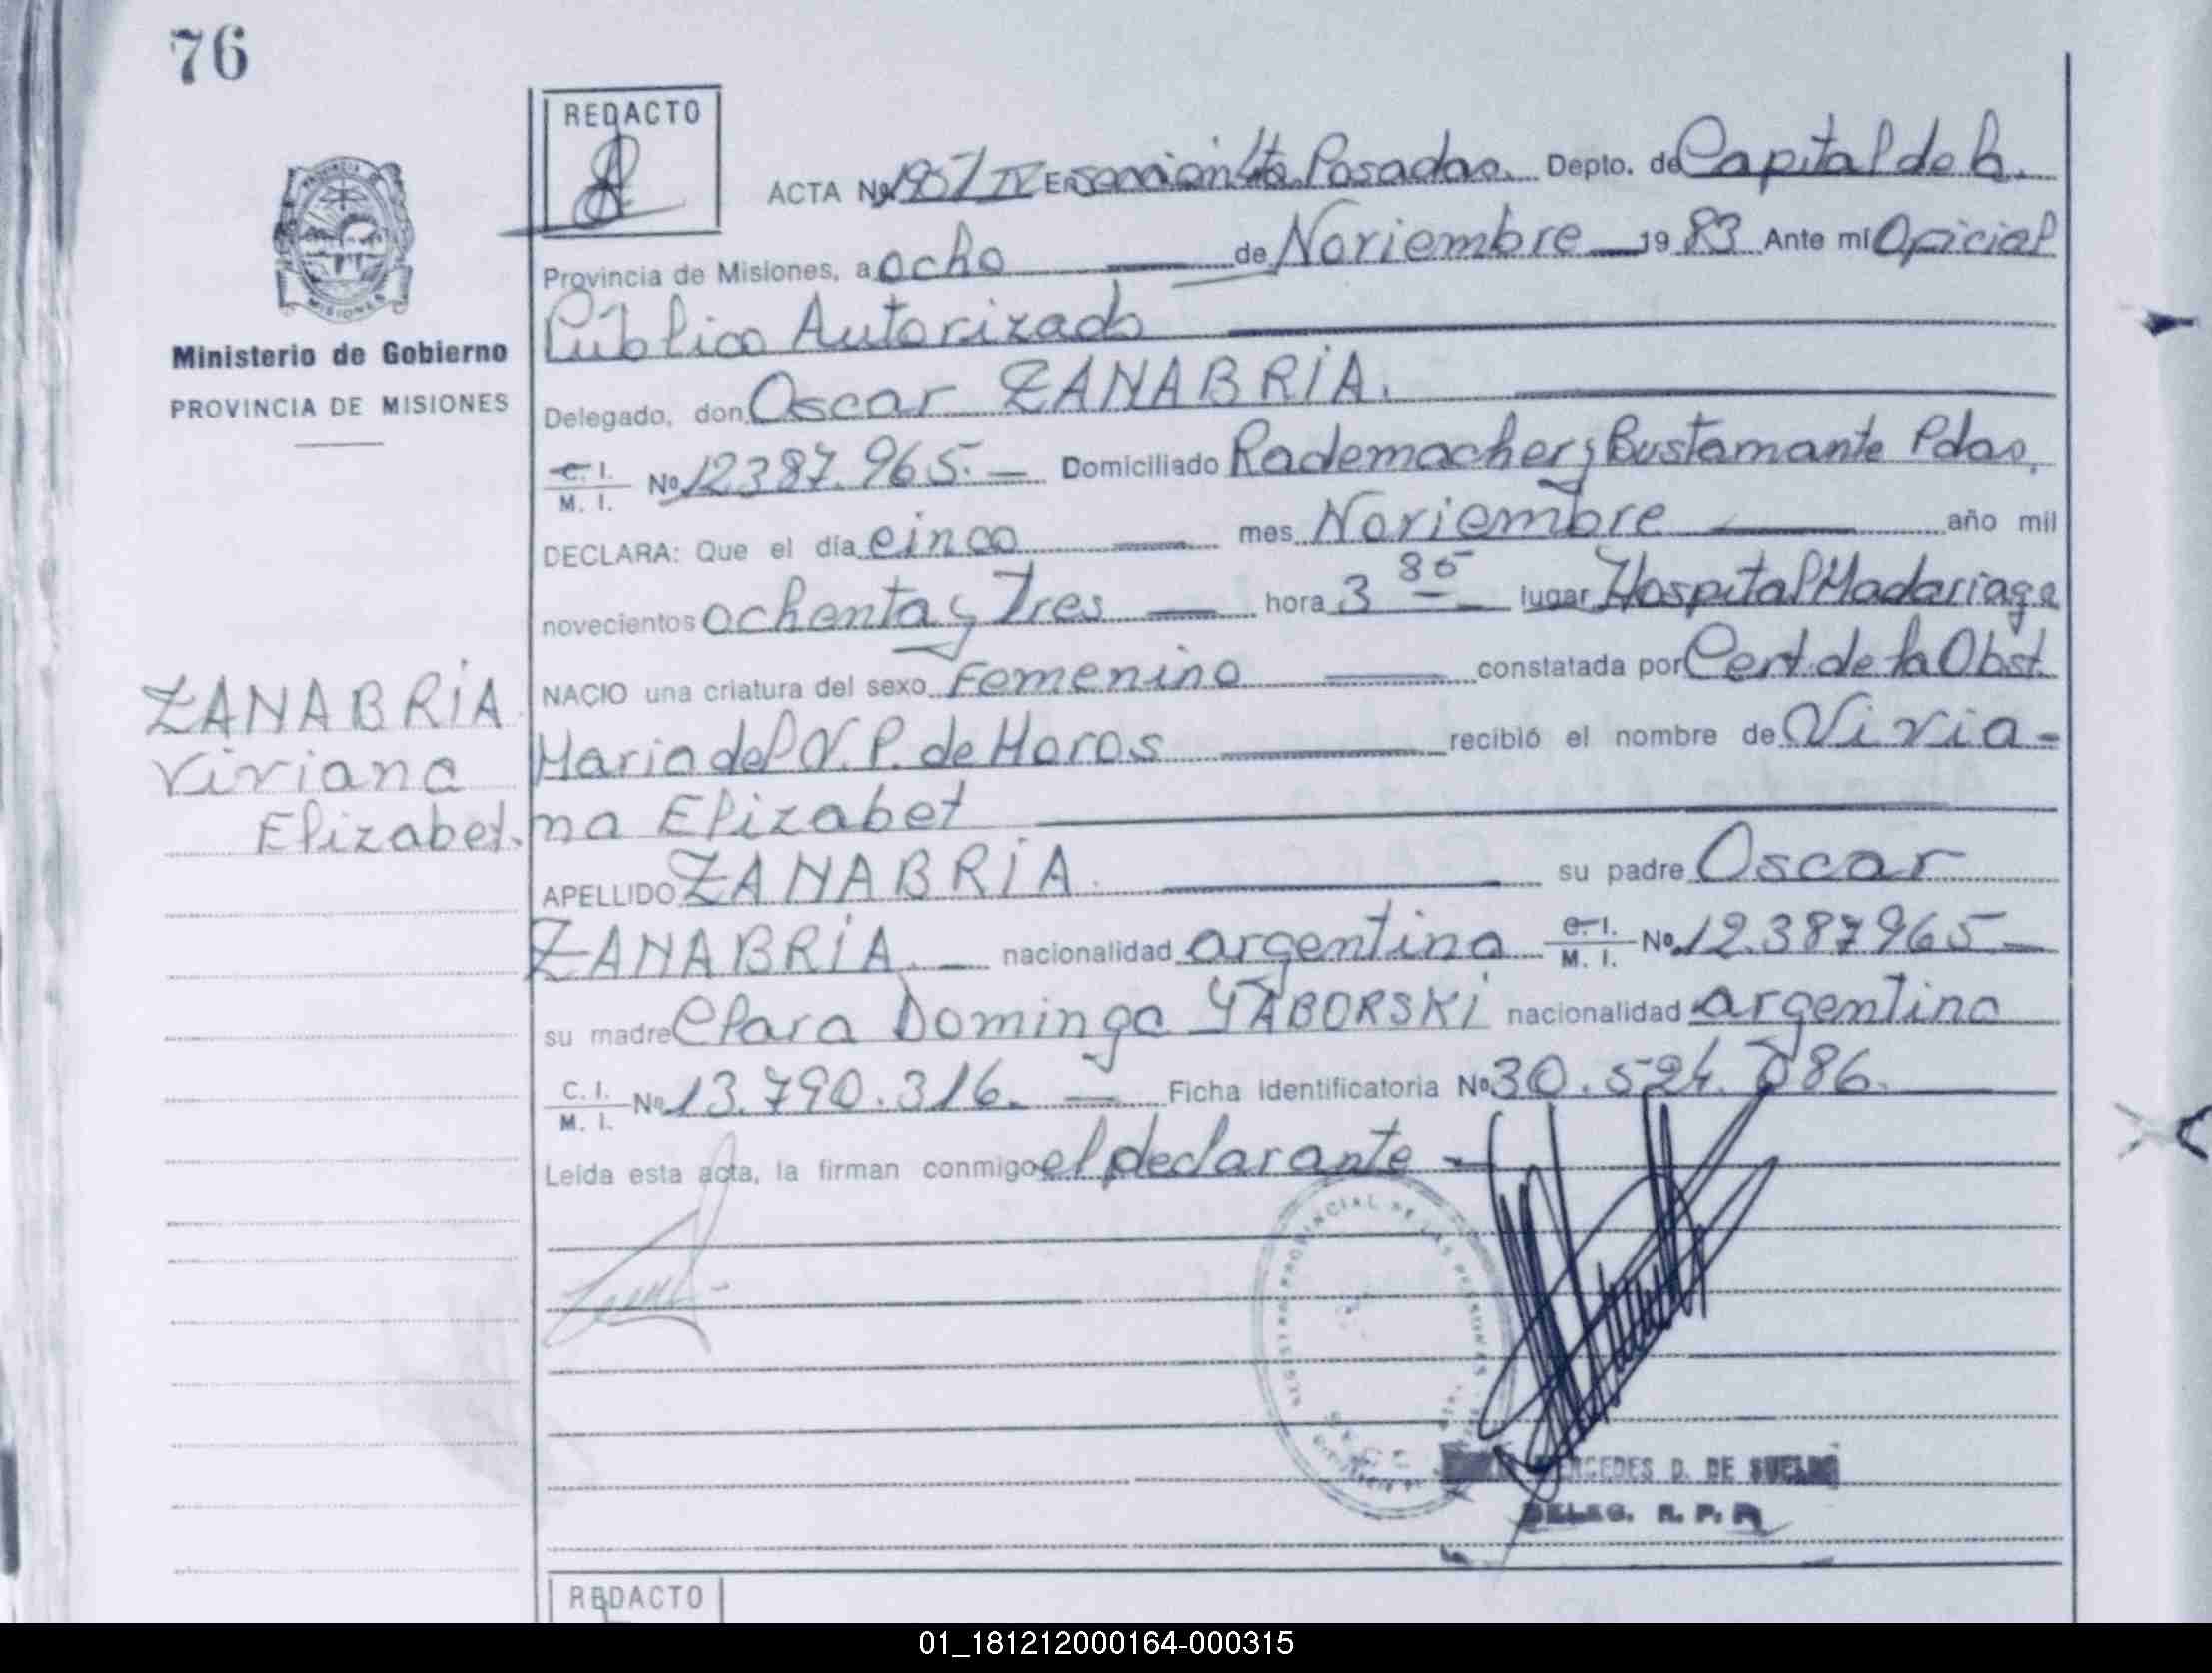 76
REDACTO
ACTA Nº 1957/IV En sección 4ta. Posadas. Depto. de Capital de la
Provincia de Misiones, a ocho de Noviembre 1983 Ante mí Oficial
Público Autorizado
Ministerio de Gobierno
PROVINCIA DE MISIONES
Delegado, don Oscar ZANABRIA.
C. I. M. I. Nº 12387.965.- Domiciliado Rademacher y Bustamante Pdas.
DECLARA: Que el día cinco mes Noviembre año mil
novecientos ochenta y Tres hora 3 lugar Hospital Madariaga
NACIO una criatura del sexo Femenino constatada por Cert. de la Obst.
Maria del V. P. de Horos recibió el nombre de Vivia-
na Elizabet
ZANABRIA
Viviana
Elizabet.
APELLIDO ZANABRIA. su padre Oscar
ZANABRIA. nacionalidad argentina C. I. M. I. Nº 12.387965-
su madre Clara Dominga YABORSKI nacionalidad argentina
C. I. M. I. Nº 13.790.316. Ficha identificatoria Nº 30.524.086.
Leída esta acta, la firman conmigo el declarante
REGISTRO PROVINCIAL DE LAS PERSONAS
MERCEDES D. DE SUELDO
DELEG. R. P. P.
REDACTO
01_181212000164-000315